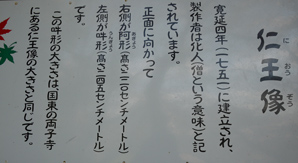 仁王像
におうぞう
寛延四年(一七五一)に建立され、
製作者は化人(僧という意味)と記
されています。
正面に向かって
右側が阿形(高さ二四〇センチメートル)
左側が吽形(高さ二四五センチメートル)
この吽形の大きさは、国東の両子寺
にある仁王像の大きさと同じです。